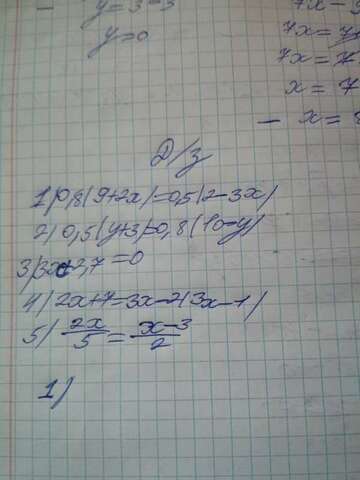 y=3-3
7x=7
y=0
7x=7
x=7
- x=
Д/з
1) 0,8(9+2x)=0,5(2-3x)
2) 0,5(y+3)=0,8(10-y)
3) 3x+2,7=0
4) 2x+7=3x-2(3x-1)
5) 2x/5=x-3/2
1)